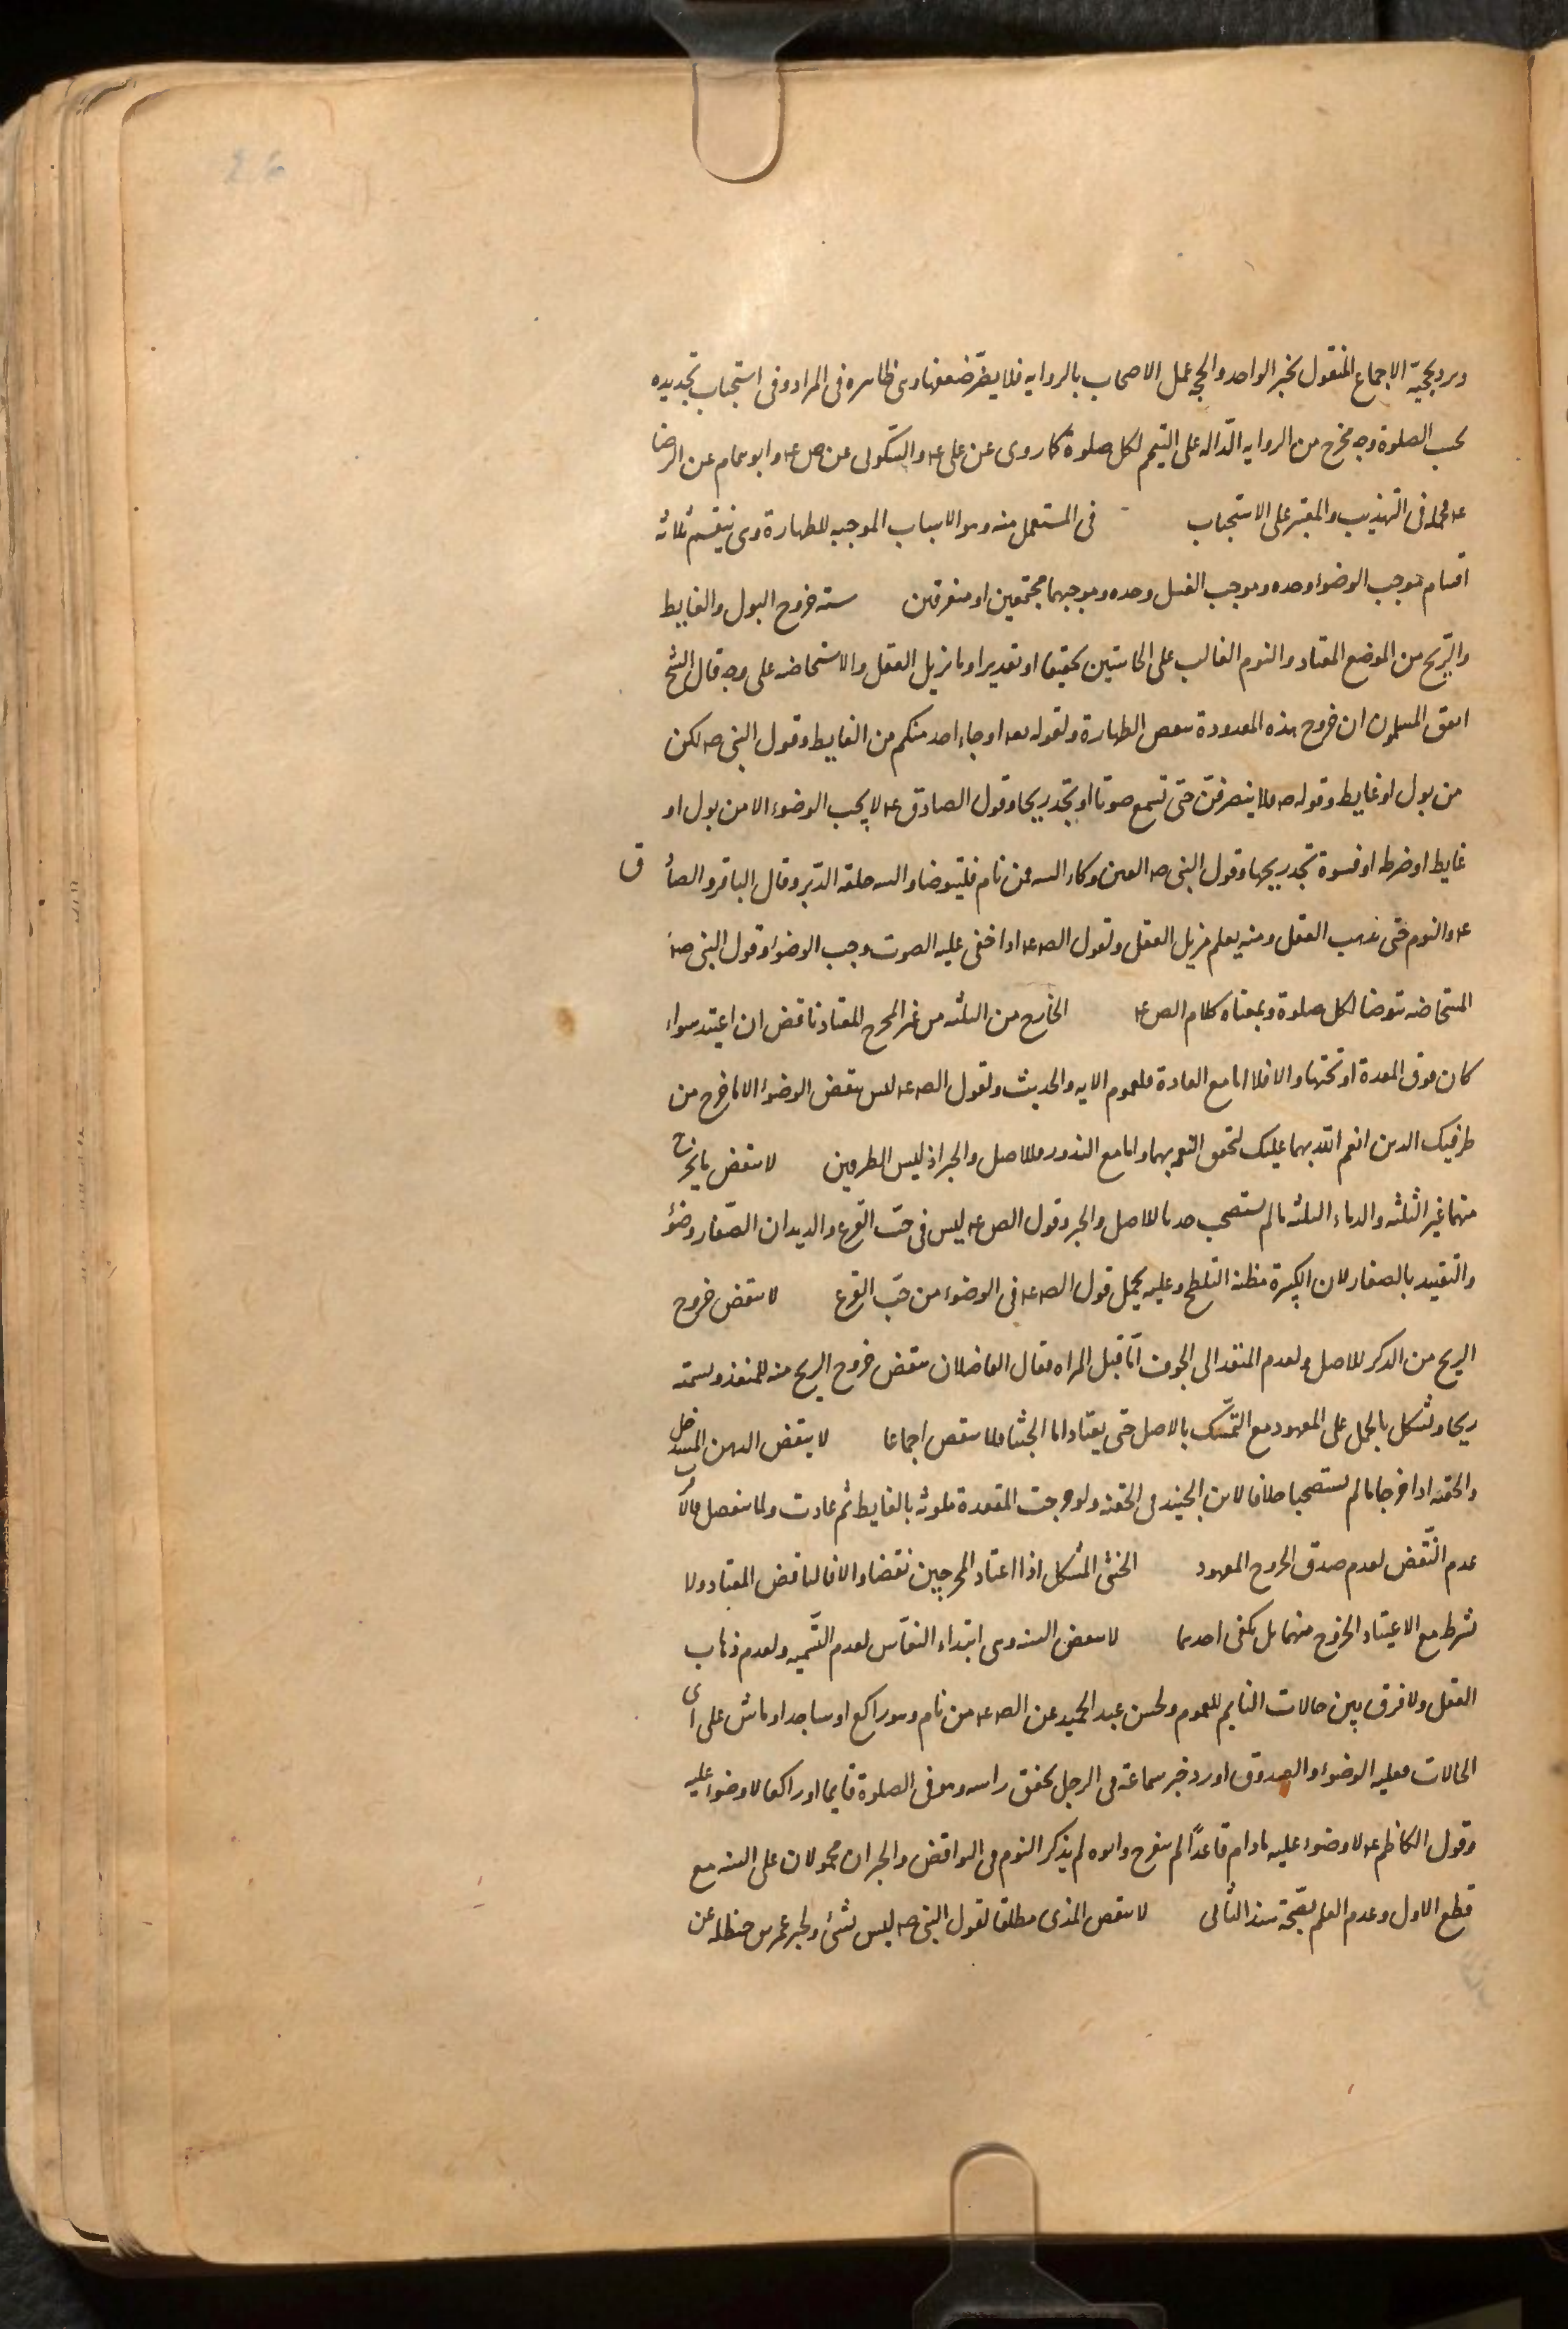 ورد بحجية الاجماع المنقول بخبر الواحد والحجه عمل الاصحاب بالروايه فلا يضر ضعفها وهى ظاهره فى المراد وفى استحباب تجديده
بحسب الصلوة وجه مخرج من الروايه الداله على التيمم لكل صلوة كما روى عن على عه والسكونى عن ص عه وابو همام عن الرضا
عه فحمله فى التهذيب والمعتبر على الاستحباب فى المستعمل منه وهو الاسباب الموجبه للطهارة وهى ينقسم ثلاثه
اقسام موجب الوضوء وحده وموجب الغسل وحده وموجبهما مجتمعين او متفرقين سته خروج البول والغايط
والريح من الموضع المعتاد والنوم الغالب على الحاستين تحقيقا او تقديرا وما يزيل العقل والاستحاضه على وجه قال الشيخ
اتفق المسلمون ان خروج هذه المعدودة ينقض الطهارة ولقوله تعه او جاء احد منكم من الغايط وقول النبى صه لكن
من بول او غايط وقوله صه فلا ينصرفن حتى تسمع صوتا او تجد ريحا وقول الصادق عه لا يجب الوضوء الا من بول او
غايط او ضرطه او فسوة تجد ريحها وقول النبى صه العين وكاء السه فمن نام فليتوضا والسه حلقه الدبر وقال الباقر والصاد ق
عه والنوم حتى يذهب العقل ومنه يعلم مزيل العقل ولقول الصه عه اذا خفى عليه الصوت وجب الوضوء وقول النبى صه
المستحاضه تتوضا لكل صلوة وبمعناه كلام الص عه الخارج من الثلثه من غير المخرج المعتاد ناقض ان اعتيد سواء
كان فوق المعدة او تحتها والا فلا اما مع العادة فلعموم الايه والحديث ولقول الصه عه ليس ينقض الوضوء الا ما خرج من
طرفيك الذين انعم الله بهما عليك لتحقق النعمه بهما واما مع الندور فللاصل والخبر اذ ليس الطرفين لا ينقض ما يخرج
منهما غير الثلثه والدماء الثلثه ما لم يستصحب حدثا للاصل والخبر وقول الص عه ليس فى حب القرع والديدان الصغار وضوء
والتقييد بالصغار لان الكبيرة مظنه التلطخ وعليه يحمل قول الصه عه فى الوضوء من حب القرع لا ينقض خروج
الريح من الذكر للاصل ولعدم المنفذ الى الجوف اما قبل المراه فقال الفاضلان ينقض خروج الريح منه للمنفذ وتسمته
ريحا ويشكل بالحمل على المعهود مع التمسك بالاصل حتى يعتاد اما الجشا فلا ينقض اجماعا لا ينقض الدهن المستدخل
والحقنه اذا خرجا ما لم يستصحبا خلافا لابن الجنيد فى الحقنه ولو خرجت المقعدة ملوثه بالغايط ثم عادت ولما ينفصل فالاقرب
عدم النقض لعدم صدق الخروج المعهود الخنثى المشكل اذا اعتاد المخرجين نقضا والا فالناقض المعتاد ولا
يشرط مع الاعتياد الخروج منهما بل يكفى احدهما لا ينقض السنه وهى ابتداء النعاس لعدم التسميه ولعدم ذهاب
العقل ولا فرق بين حالات النايم للعموم ولحسن عبد الحميد عن الصه عه من نام وهو راكع او ساجد او ماش على اى
الحالات فعليه الوضوء والصدوق اورد خبر سماعة فى الرجل يخفق راسه وهو فى الصلوة قايما او راكعا لا وضوء عليه
وقول الكاظم عه لا وضوء عليه ما دام قاعدا لم ينفرج وابوه لم يذكر النوم فى النواقض والخبران محمولان على السنه مع
قطع الاول وعدم العلم بصحة سند الثانى لا ينقض المذى مطلقا لقول النبى صه ليس بشئ ولخبر عمر بن حنظله عن